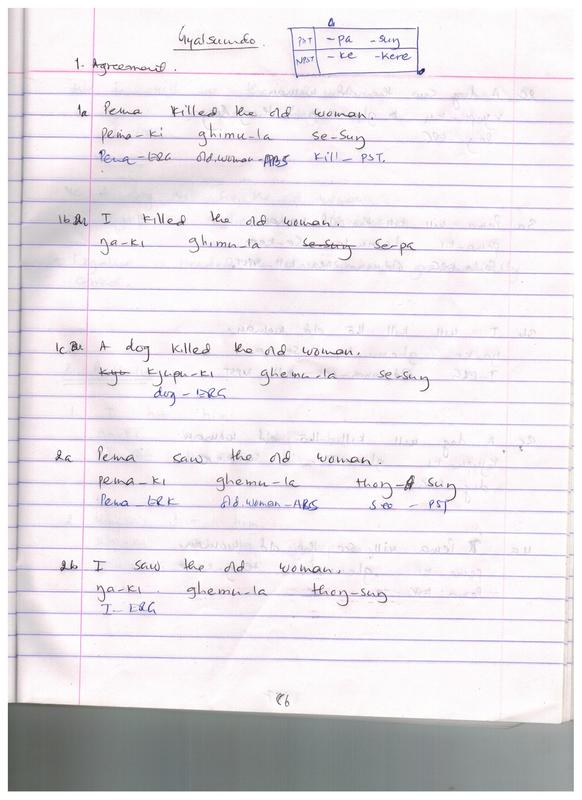 Gyalsumdo
PST -pa -suŋ
NPST -ke -kere
1. Agreement.
1a Pema killed the old woman.
pema-ki ghimu-la se-suŋ
Pema-ERG old.woman-ABS kill-PST.
1b I killed the old woman.
ŋa-ki ghimu-la se-suŋ se-pa
1c A dog killed the old woman.
kyu kjupu-ki ghemu-la se-suŋ
dog-ERG
2a Pema saw the old woman.
pema-ki ghemu-la thoŋ-suŋ
Pema-ERK old.woman-ABS see-PST
2b I saw the old woman.
ŋa-ki ghemu-la thoŋ-suŋ
I-ERG